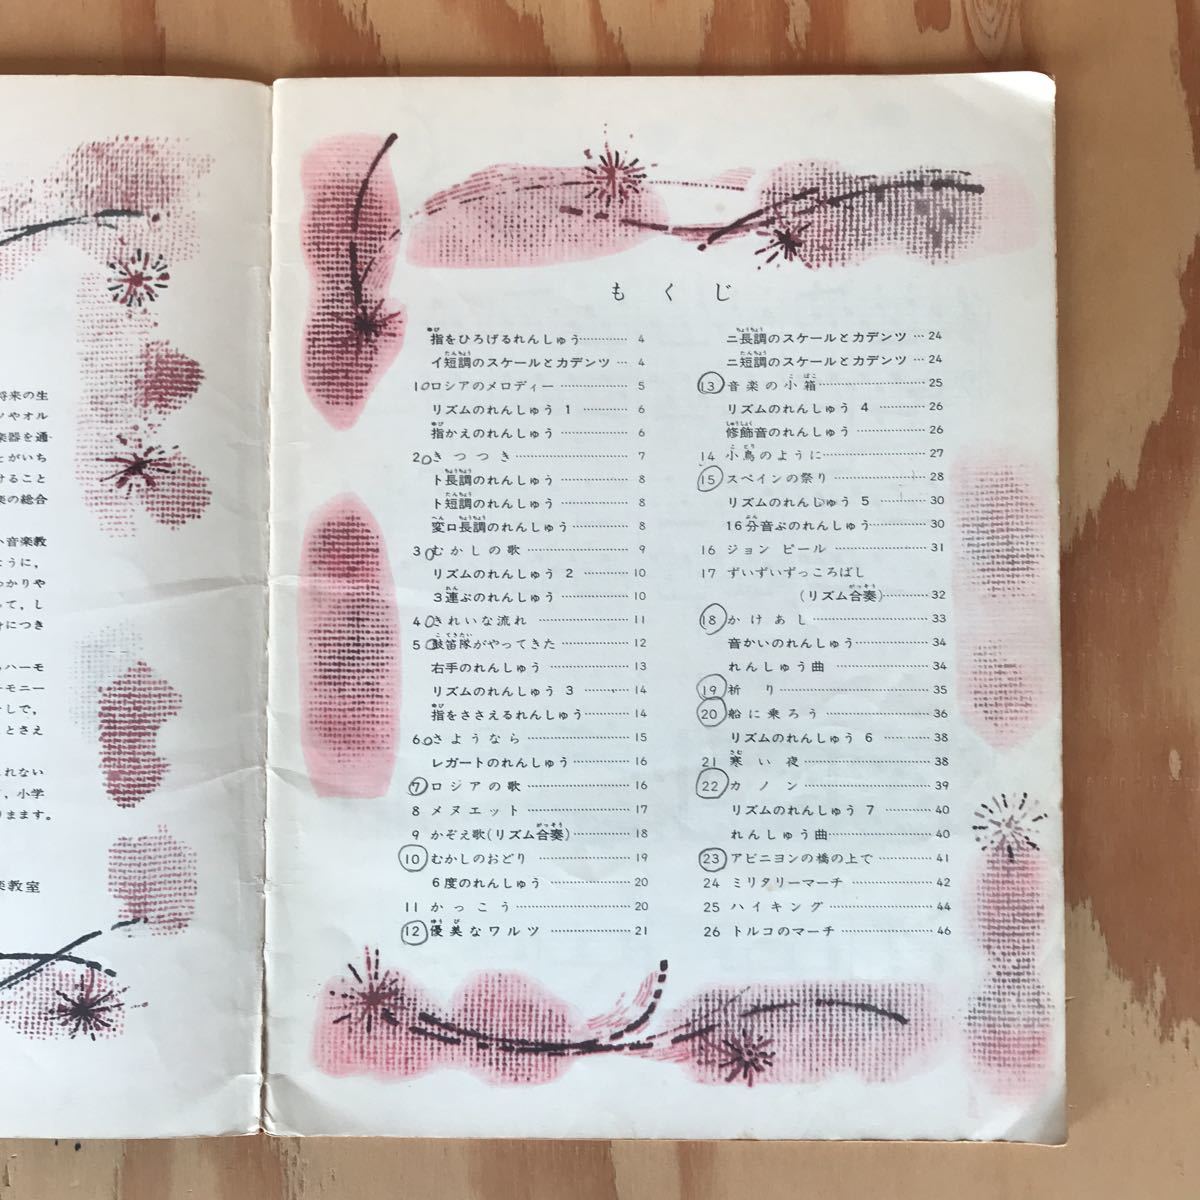 将来の生
やオル
楽器を通
とがいち
けること
楽の総合
音楽教
ように,
わかりや
って, し
身につき
ハーモ
ーモニー
として,
とさえ
れない
, 小学
ります。
教室
もくじ
指をひろげるれんしゅう………… 4
イ短調のスケールとカデンツ … 4
1 ロシアのメロディー ………… 5
リズムのれんしゅう 1 ………… 6
指かえのれんしゅう ………… 6
2 きつつき ………… 7
ト長調のれんしゅう ………… 8
ト短調のれんしゅう ………… 8
変ロ長調のれんしゅう ………… 8
3 むかしの歌 ………… 9
リズムのれんしゅう 2 ………… 10
3連ぷのれんしゅう ………… 10
4 きれいな流れ ………… 11
5 鼓笛隊がやってきた ………… 12
右手のれんしゅう ………… 13
リズムのれんしゅう 3 ………… 14
指をささえるれんしゅう………… 14
6 さようなら ………… 15
レガートのれんしゅう ………… 16
7 ロシアの歌 ………… 16
8 メヌエット ………… 17
9 かぞえ歌(リズム合奏)………… 18
10 むかしのおどり ………… 19
6度のれんしゅう ………… 20
11 かっこう ………… 20
12 優美なワルツ ………… 21
ニ長調のスケールとカデンツ … 24
ニ短調のスケールとカデンツ … 24
13 音楽の小箱 ………… 25
リズムのれんしゅう 4 ………… 26
修飾音のれんしゅう ………… 26
14 小鳥のように ………… 27
15 スペインの祭り ………… 28
リズムのれんしゅう 5 ………… 30
16分音ぷのれんしゅう ………… 30
16 ジョン ピール ………… 31
17 ずいずいずっころばし
(リズム合奏)………… 32
18 かけあし ………… 33
音かいのれんしゅう ………… 34
れんしゅう曲 ………… 34
19 祈り ………… 35
20 船に乗ろう ………… 36
リズムのれんしゅう 6 ………… 38
21 寒い夜 ………… 38
22 カノン ………… 39
リズムのれんしゅう 7 ………… 40
れんしゅう曲 ………… 40
23 アビニヨンの橋の上で ………… 41
24 ミリタリーマーチ ………… 42
25 ハイキング ………… 44
26 トルコのマーチ ………… 46